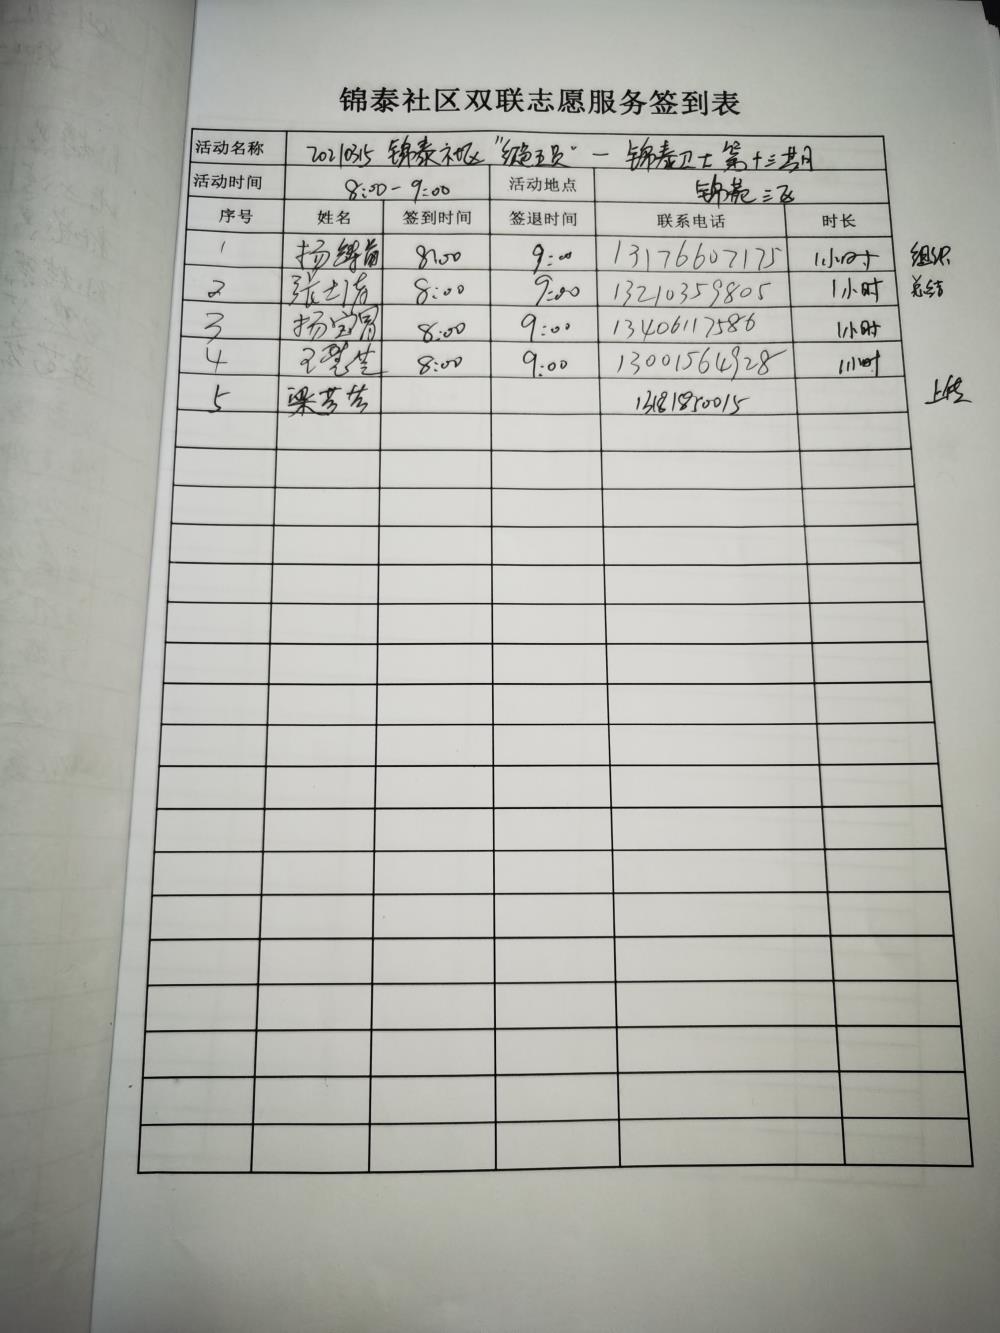 锦泰社区双联志愿服务签到表
活动名称 20210315 锦泰社区 一 锦泰卫士第十三期
活动时间 8:00-9:00 活动地点 锦苑三区
序号 姓名 签到时间 签退时间 联系电话 时长
1 杨 8:00 9:00 13176607175 1小时 组织
2 张士 8:00 9:00 13210359805 1小时 总结
3 杨宝 8:00 9:00 13406117586 1小时
4 王慧芝 8:00 9:00 13001564928 1小时
5 梁芳芳 13181850015 上传